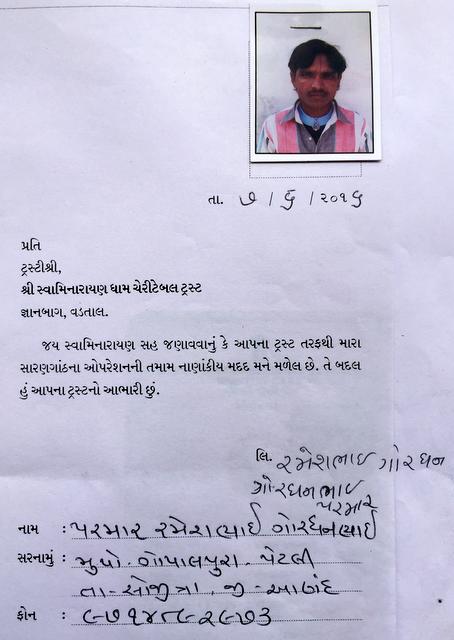 તા. ૭ / ૬ / ૨૦૧૬
પ્રતિ
ટ્રસ્ટીશ્રી,
શ્રી સ્વામિનારાયણ ધામ ચેરીટેબલ ટ્રસ્ટ
જ્ઞાનબાગ, વડતાલ.
જય સ્વામિનારાયણ સહ જણાવવાનું કે આપના ટ્રસ્ટ તરફથી મારા
સારણગાંઠના ઓપરેશનની તમામ નાણાંકીય મદદ મને મળેલ છે. તે બદલ
હું આપના ટ્રસ્ટનો આભારી છું.
લિ. રમેશભાઇ ગોરધન
ગોરધનભાઇ
પરમાર
નામ : પરમાર રમેશભાઈ ગોરધનભાઈ
સરનામું : મુપો. ગોપાલપુરા. પેટલી
તા- સોજીત્રા. જી- આણંદ
ફોન :